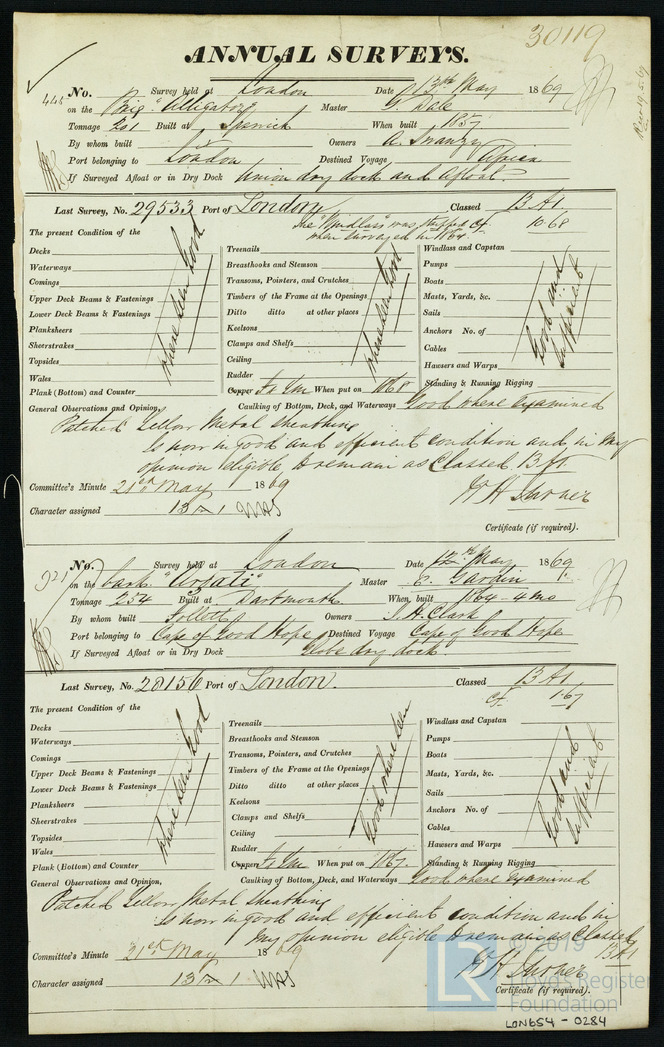 30119
ANNUAL SURVEYS.
446 No. Survey held at London Date 13th May 1869
on the Brig "Alligator" Master G Dale
Tonnage 201 Built at Ipswich When built 1857
By whom built Owners A. Swanzy
Port belonging to London Destined Voyage Africa
If Surveyed Afloat or in Dry Dock Union dry dock and Afloat.
Last Survey, No. 29533 Port of London Classed 13 A1
The "Windlass" was stripped 10-68
when surveyed in 1864
The present Condition of the
Decks
Waterways
Comings
Upper Deck Beams & Fastenings
Lower Deck Beams & Fastenings
Planksheers
Sheerstrakes
Topsides
Wales
Plank (Bottom) and Counter
where seen Good
Treenails
Breasthooks and Stemson
Transoms, Pointers, and Crutches
Timbers of the Frame at the Openings
Ditto ditto at other places
Keelsons
Clamps and Shelfs
Ceiling
Rudder
Copper When put on 1868
where seen Good
Windlass and Capstan
Pumps
Boats
Masts, Yards, &c.
Sails
Anchors No. of
Cables
Hawsers and Warps
Standing & Running Rigging
Good and
sufficient
General Observations and Opinion, Caulking of Bottom, Deck, and Waterways Good where examined
Patched Yellow Metal Sheathing
Is now in good and efficient condition and in my
opinion eligible to remain as Classed 13 A1.
Committee's Minute 21st May 1869
W H Turner
Character assigned 13 A 1
Certificate (if required).
No. Survey held at London Date 12th May 1869
921 on the bark "Ursati" Master Jardin
Tonnage 254 Built at Dartmouth When built 1864-4mo
By whom built Follett Owners J. H. Clark
Port belonging to Cape of Good Hope Destined Voyage Cape of Good Hope
If Surveyed Afloat or in Dry Dock Globe dry dock.
Last Survey, No. 28156 Port of London. Classed 13 A1
1-67
The present Condition of the
Decks
Waterways
Comings
Upper Deck Beams & Fastenings
Lower Deck Beams & Fastenings
Planksheers
Sheerstrakes
Topsides
Wales
Plank (Bottom) and Counter
where seen Good
Treenails
Breasthooks and Stemson
Transoms, Pointers, and Crutches
Timbers of the Frame at the Openings
Ditto ditto at other places
Keelsons
Clamps and Shelfs
Ceiling
Rudder
Copper When put on 1867.
Good where seen
Windlass and Capstan
Pumps
Boats
Masts, Yards, &c.
Sails
Anchors No. of
Cables
Hawsers and Warps
Standing & Running Rigging
Good and
sufficient
General Observations and Opinion, Caulking of Bottom, Deck, and Waterways Good where examined
Patched Yellow Metal Sheathing
Is now in good and efficient condition and in
my opinion eligible to remain as Classed
13 A1
Committee's Minute 21st May 1869
W H Turner
Character assigned 13 A 1
Certificate (if required).
© 2019
LR Lloyd's Register
Foundation
LON654-0284